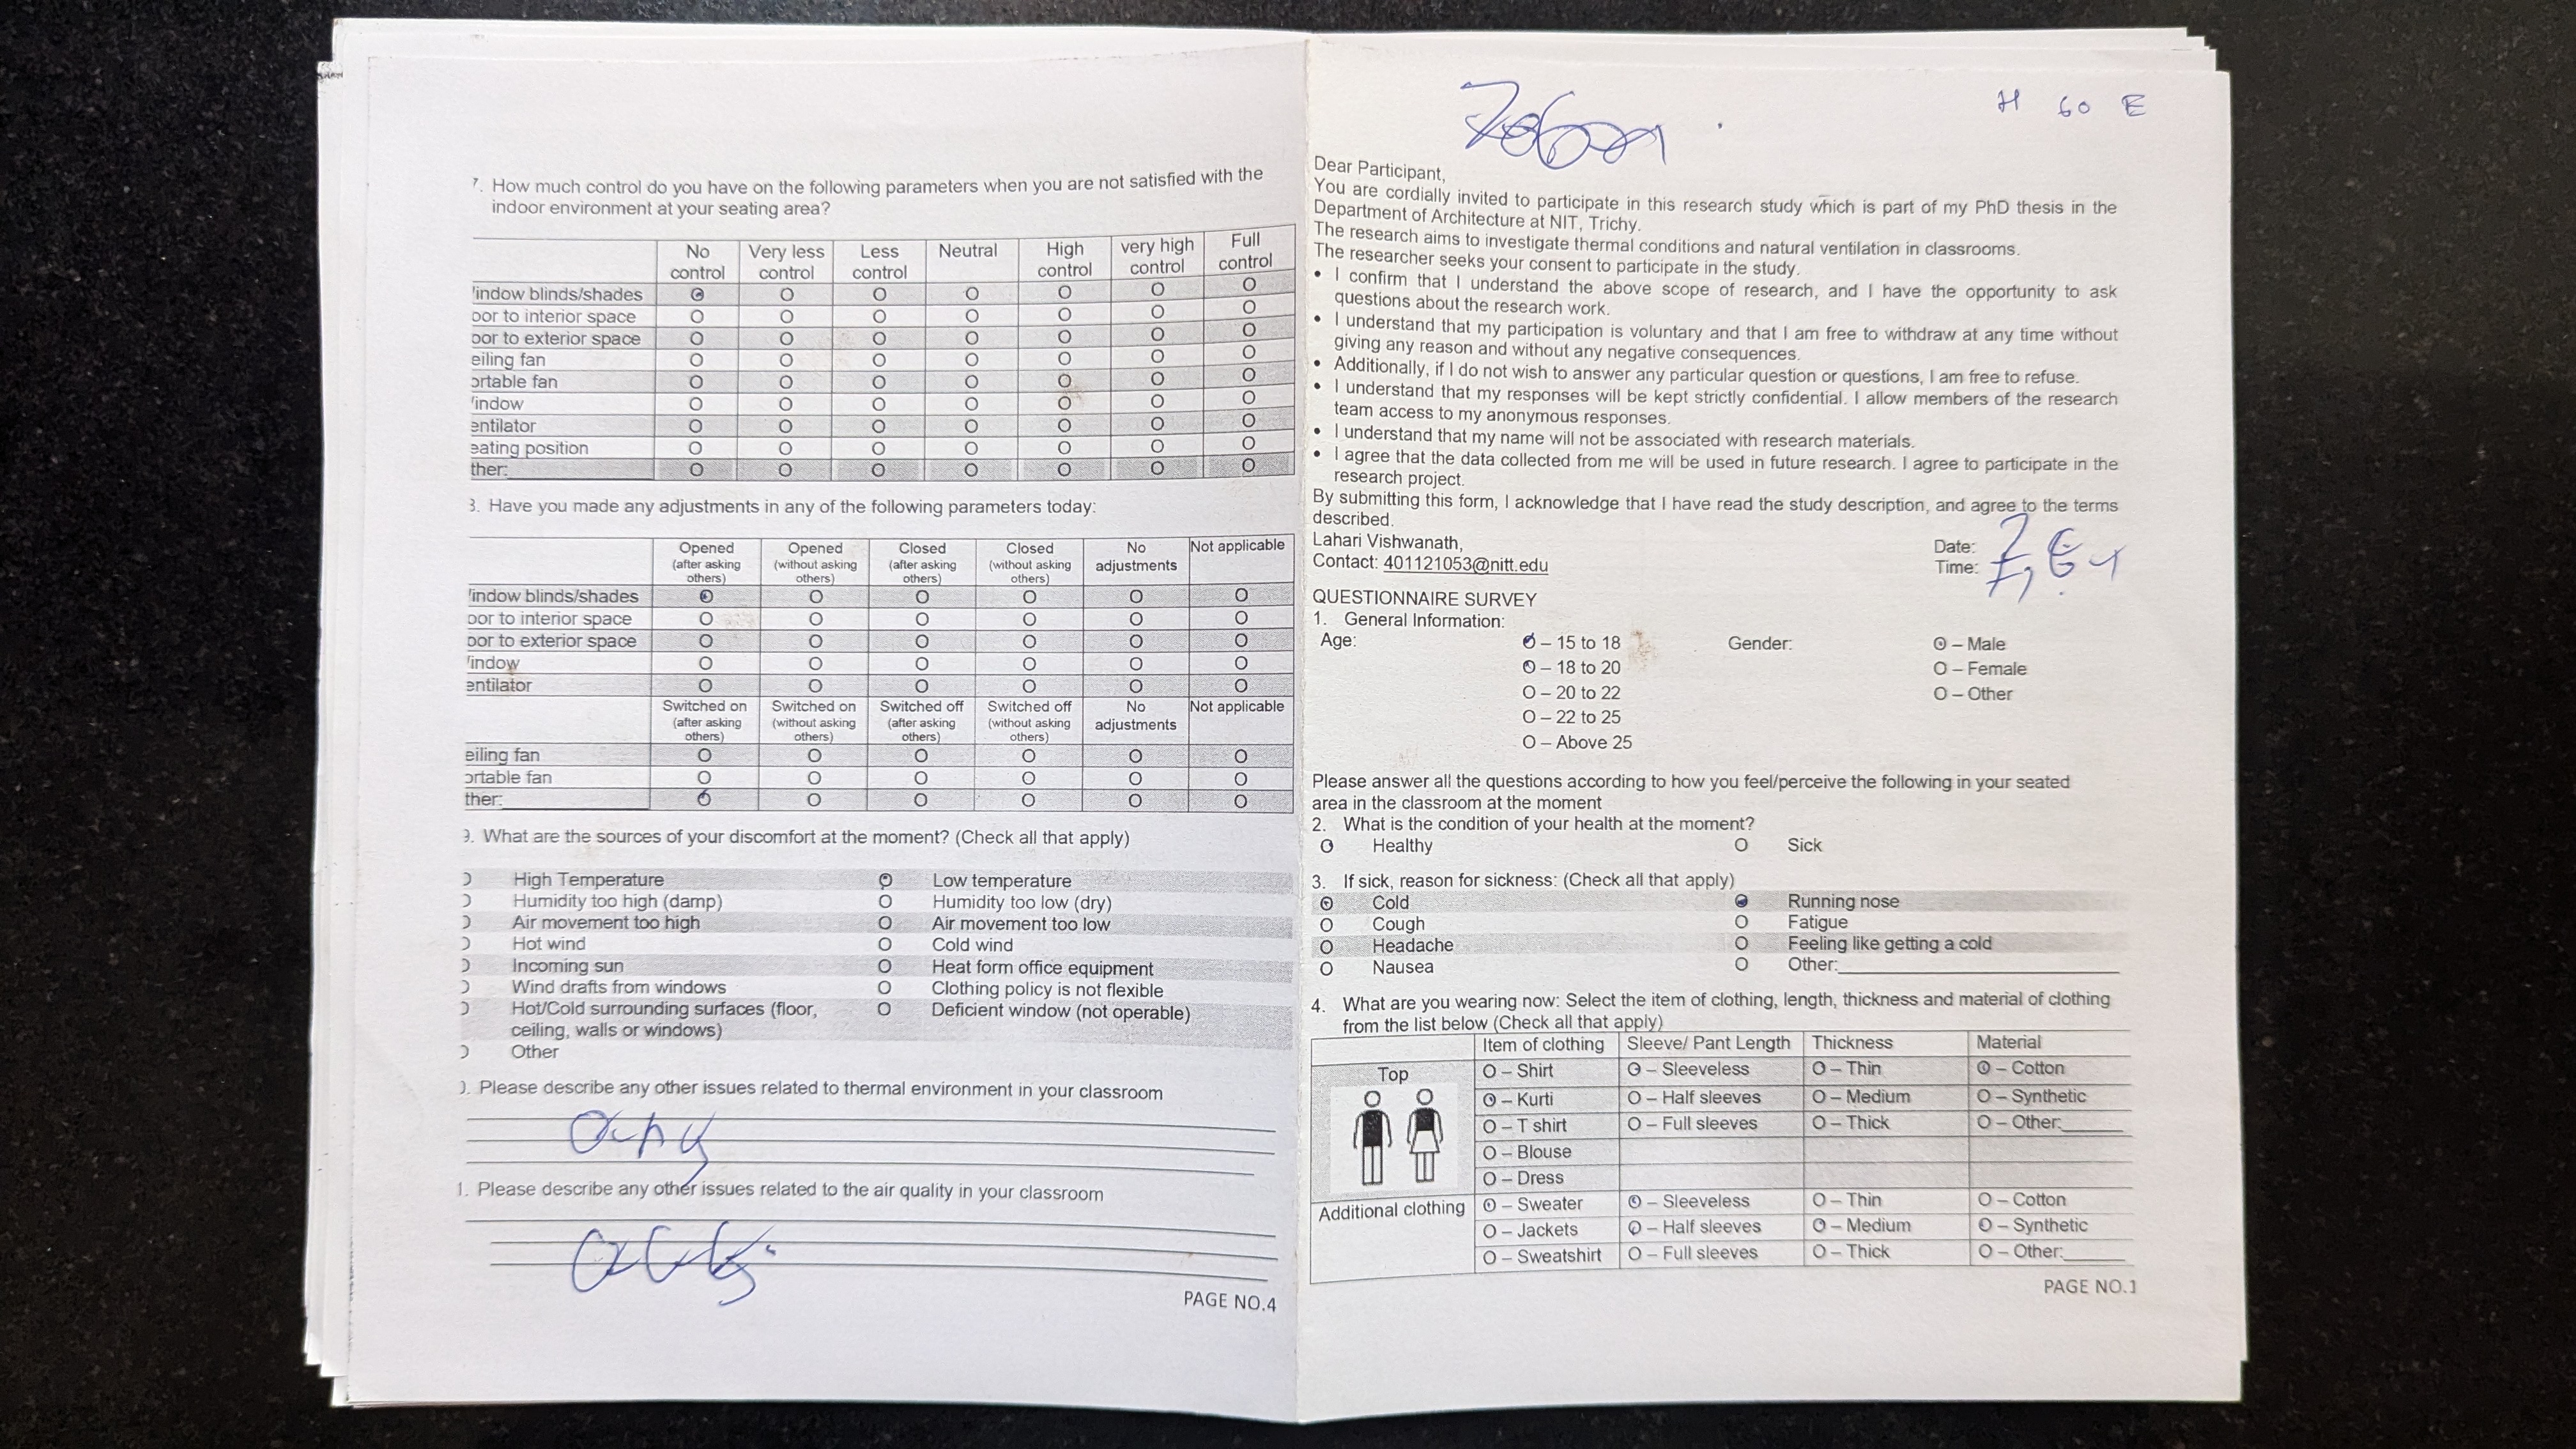 7. How much control do you have on the following parameters when you are not satisfied with the
indoor environment at your seating area?
No control Very less control Less control Neutral High control very high control Full control
indow blinds/shades O O O O O O O
oor to interior space O O O O O O O
oor to exterior space O O O O O O O
eiling fan O O O O O O O
ortable fan O O O O O O O
indow O O O O O O O
entilator O O O O O O O
eating position O O O O O O O
ther: O O O O O O O
3. Have you made any adjustments in any of the following parameters today:
Opened (after asking others) Opened (without asking others) Closed (after asking others) Closed (without asking others) No adjustments Not applicable
indow blinds/shades O O O O O O
oor to interior space O O O O O O
oor to exterior space O O O O O O
indow O O O O O O
entilator O O O O O O
Switched on (after asking others) Switched on (without asking others) Switched off (after asking others) Switched off (without asking others) No adjustments Not applicable
eiling fan O O O O O O
ortable fan O O O O O O
ther: O O O O O O
9. What are the sources of your discomfort at the moment? (Check all that apply)
High Temperature O Low temperature
Humidity too high (damp) O Humidity too low (dry)
Air movement too high O Air movement too low
Hot wind O Cold wind
Incoming sun O Heat form office equipment
Wind drafts from windows O Clothing policy is not flexible
Hot/Cold surrounding surfaces (floor, O Deficient window (not operable)
ceiling, walls or windows)
Other
). Please describe any other issues related to thermal environment in your classroom
1. Please describe any other issues related to the air quality in your classroom
PAGE NO.4
H 60 E
Dear Participant,
You are cordially invited to participate in this research study which is part of my PhD thesis in the
Department of Architecture at NIT, Trichy.
The research aims to investigate thermal conditions and natural ventilation in classrooms.
The researcher seeks your consent to participate in the study.
• I confirm that I understand the above scope of research, and I have the opportunity to ask
questions about the research work.
• I understand that my participation is voluntary and that I am free to withdraw at any time without
giving any reason and without any negative consequences.
• Additionally, if I do not wish to answer any particular question or questions, I am free to refuse.
• I understand that my responses will be kept strictly confidential. I allow members of the research
team access to my anonymous responses.
• I understand that my name will not be associated with research materials.
• I agree that the data collected from me will be used in future research. I agree to participate in the
research project.
By submitting this form, I acknowledge that I have read the study description, and agree to the terms
described.
Lahari Vishwanath, Date:
Contact: 401121053@nitt.edu Time:
QUESTIONNAIRE SURVEY
1. General Information:
Age: O – 15 to 18 Gender: O – Male
O – 18 to 20 O – Female
O – 20 to 22 O – Other
O – 22 to 25
O – Above 25
Please answer all the questions according to how you feel/perceive the following in your seated
area in the classroom at the moment
2. What is the condition of your health at the moment?
O Healthy O Sick
3. If sick, reason for sickness: (Check all that apply)
O Cold O Running nose
O Cough O Fatigue
O Headache O Feeling like getting a cold
O Nausea O Other:
4. What are you wearing now: Select the item of clothing, length, thickness and material of clothing
from the list below (Check all that apply)
Item of clothing Sleeve/ Pant Length Thickness Material
Top O – Shirt O – Sleeveless O – Thin O – Cotton
O – Kurti O – Half sleeves O – Medium O – Synthetic
O – T shirt O – Full sleeves O – Thick O – Other:
O – Blouse
O – Dress
Additional clothing O – Sweater O – Sleeveless O – Thin O – Cotton
O – Jackets O – Half sleeves O – Medium O – Synthetic
O – Sweatshirt O – Full sleeves O – Thick O – Other:
PAGE NO.1